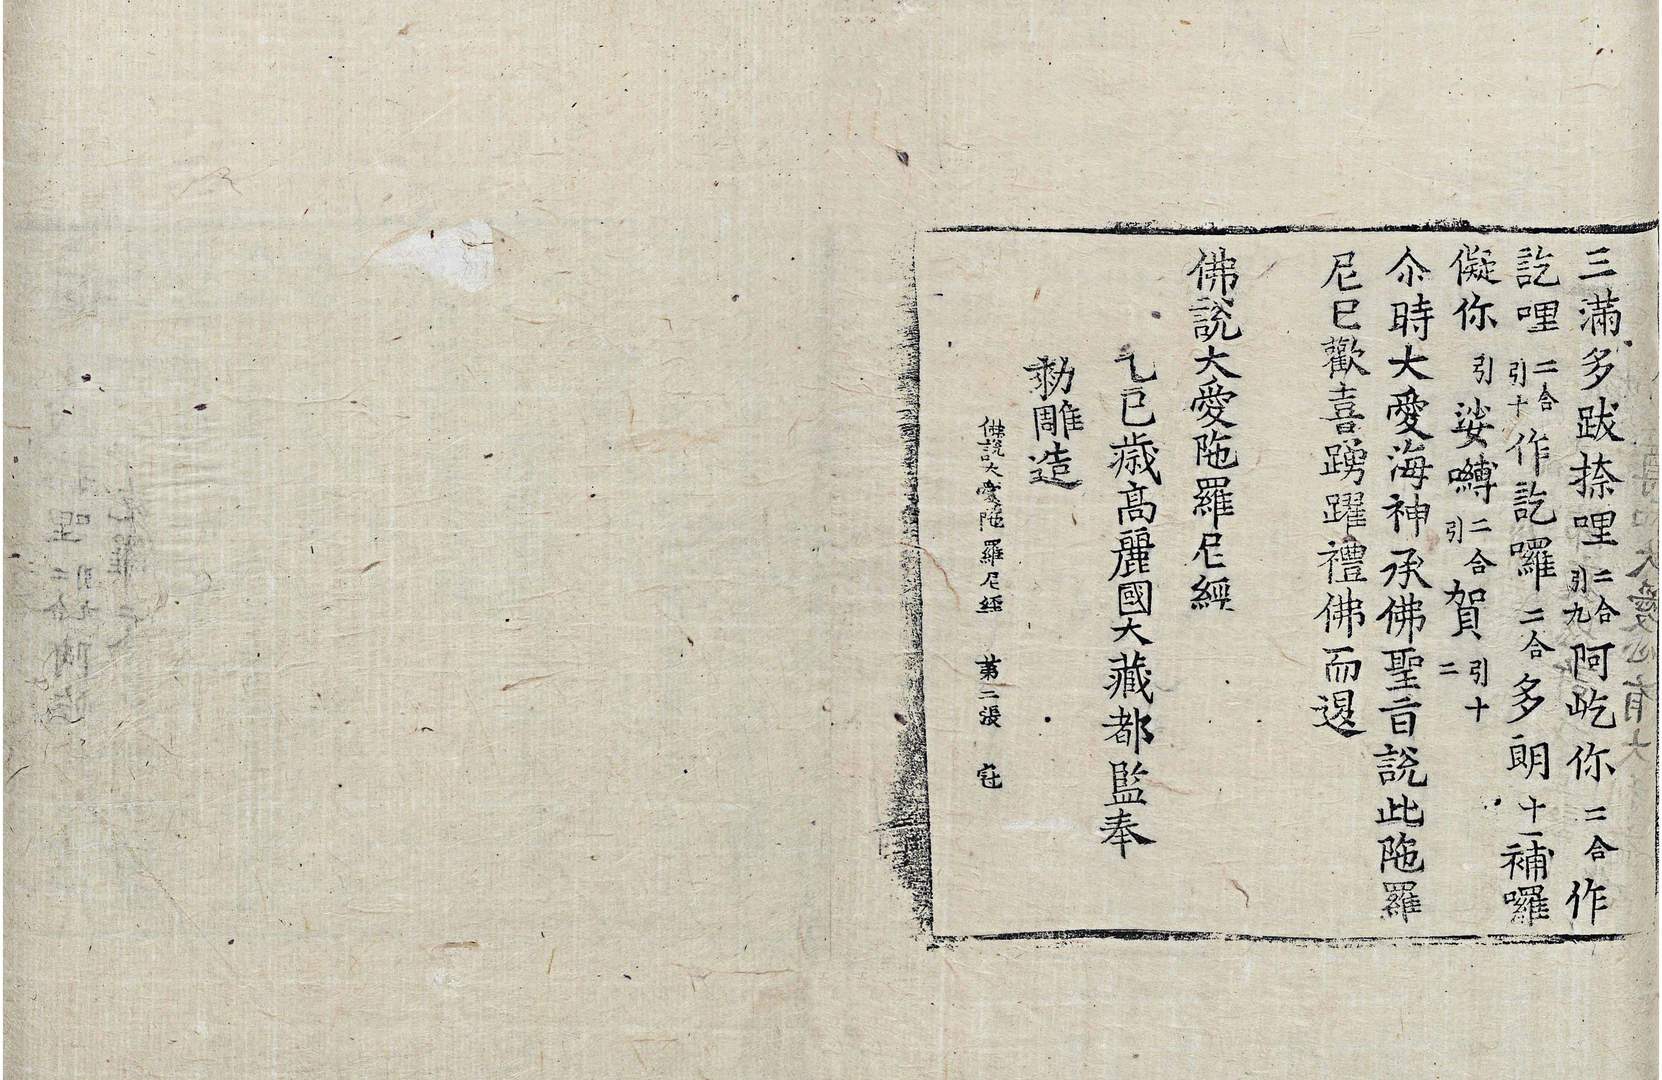 三滿多跋捺哩二合引九阿屹你二合作
訖哩二合引十作訖囉二合多朗十一補囉
儗你引娑嚩二合引賀引十二
尒時大愛海神承佛聖旨說此陁羅
尼已歡喜踴躍禮佛而退
佛說大愛陁羅尼經
乙巳歲高麗國大藏都監奉
勑雕造
佛說大愛陁羅尼經 苐二張